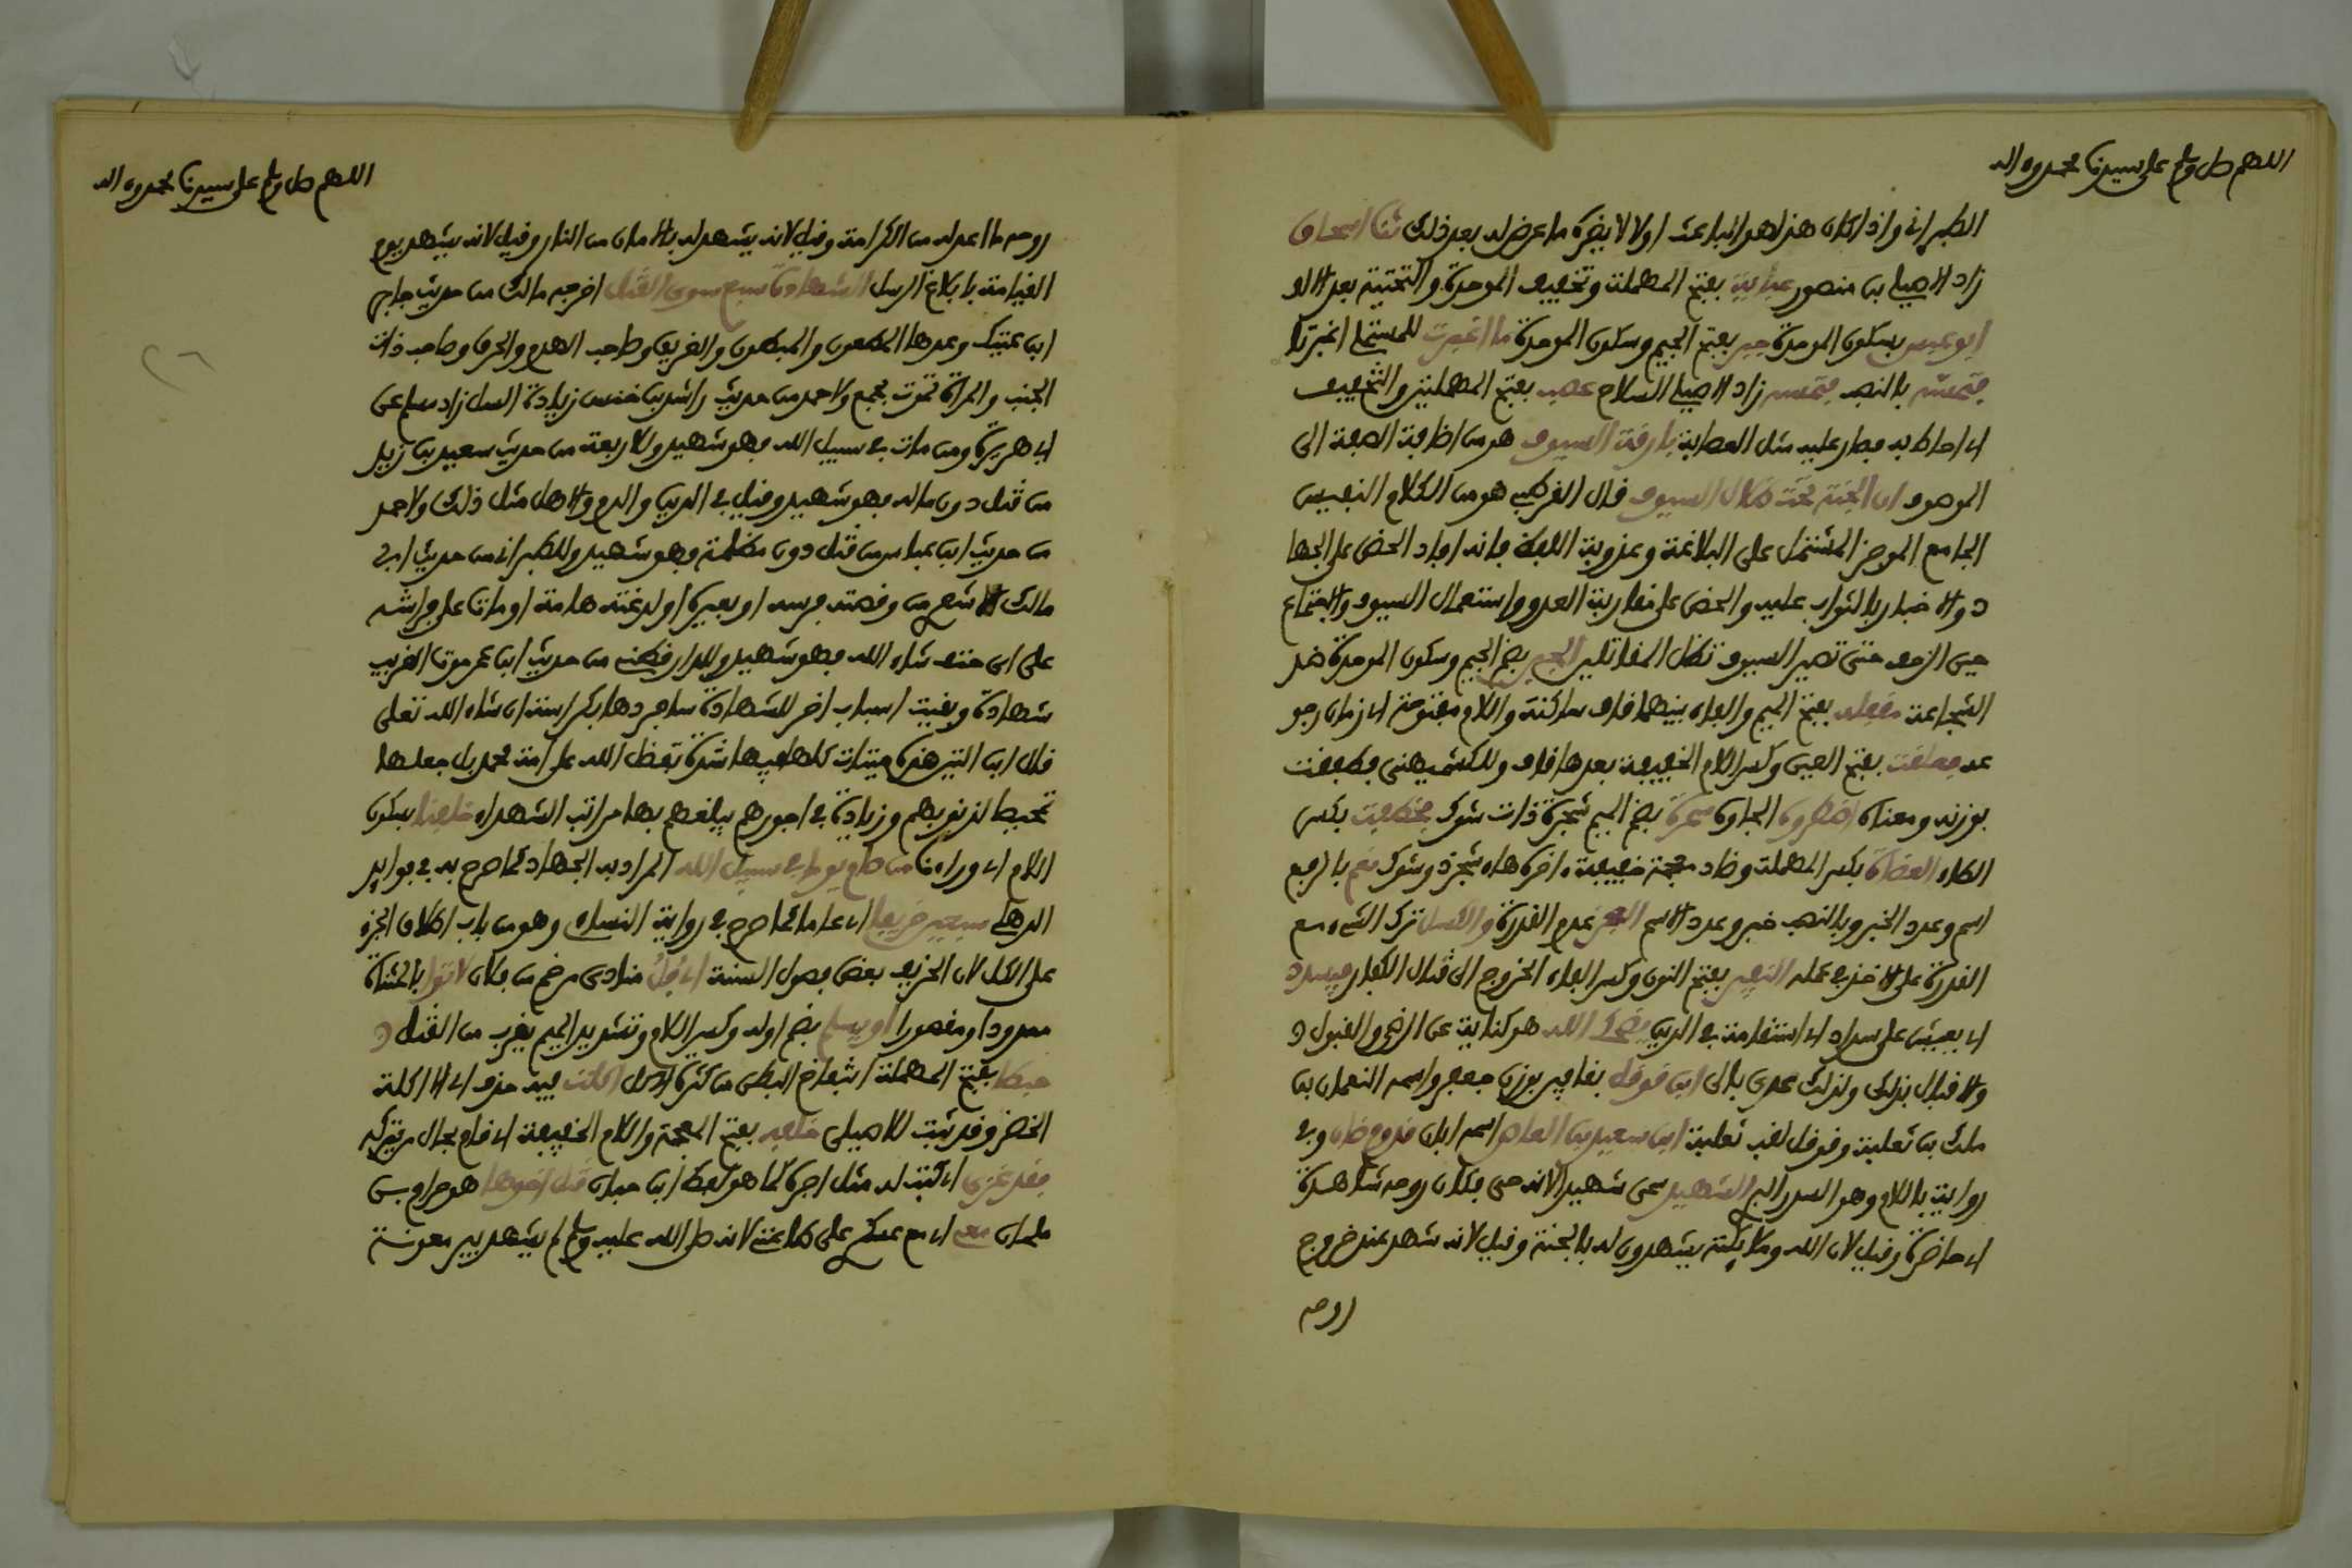 اللهم صل وسلم على سيدنا محمد وءاله
الطبراني واذا كان هذا هو الباعث اولا لا يضره ما عرض له بعد ذلك ثنا اسحاق
زاد الاصيلي بن منصور عباية بفتح المهملة وتخفيف الموحدة والتحتية بعد الالف
ابو عبس بسكون الموحدة جبر بفتح الجيم وسكون الموحدة ما اغبرت للمستملي اغبرتا
فتمسه بالنصب فتمسه زاد الاصيلي السلام عصب بفتح المهملتين والتخفيف
اي احاط به فصار عليه مثل العصابة بارقة السيوف هو من اضافة الصفة الى
الموصوف ان الجنة تحت ظلال السيوف قال القرطبي هو من الكلام النفيس
الجامع الموجز المشتمل على البلاغة وعذوبة اللفظ فانه افاد الحض على الجها
د والاخبار بالثواب عليه والحض على مقاربة العدو واستعمال السيوف والاجتماع
حين الزحف حتى تصير السيوف تظل المقاتلين الجبن بضم الجيم وسكون الموحدة ضد
الشجاعة مقفله بفتح الميم والفاء بينهما قاف ساكنة واللام مفتوحة اي زمان رجو
عه فعلقت بفتح العين وكسر اللام الخفيفة بعدها قاف وللكشميهني فطفقت
بوزنه ومعناه اضطروه الجاوه سمرة بضم الميم شجرة ذات شوك فخطفت بكسر
الطاء العضاه بكسر المهملة وضاد معجمة خفيفة ءاخره هاء شجر ذو شوك نعم بالرفع
اسم وعدد الخبر وبالنصب خبر وعدد الاسم العجز عدم القدرة والكسل ترك الشيء مع
القدرة على الاخذ في عمله النفير بفتح النون وكسر الفاء الخروج الى قتال الكفار فيسدد
اي يعيش على سداد اي استقامة في الدين يضحك الله هو كناية عن الرضى والقبول و
والاقبال بذلك ولذلك عدي بالى ابن قوقل بقافين بوزن جعفر واسمه النعمان بن
ملك بن ثعلبة وقوقل لقب ثعلبة ابن سعيد بن العاص اسمه ابان قدوم ضان وفي
رواية باللام وهو السدر البري الشهيد سمي شهيدا لانه حي فكان روحه شاهدة
اي حاضرة وقيل لان الله وملائكته يشهدون له بالجنة وقيل لانه شهد عند خروج
روحه
اللهم صل وسلم على سيدنا محمد وءاله
روحه ما اعد له من الكرامة وقيل لانه يشهد له بالامان من النار وقيل لانه يشهد يوم
القيامة بابلاغ الرسل الشهادة سبع سوى القتل اخرجه مالك من حديث جابر
ابن عتيك وعدها المطعون والمبطون والغريق وصاحب الهدم والحرق وصاحب ذات
الجنب والمراة تموت بجمع ولاحمد من حديث راشد بن خنيس زيادة السل زاد مسلم عن
ابي هريرة ومن مات في سبيل الله فهو شهيد وللاربعة من حديث سعيد بن زيد
من قتل دون ماله فهو شهيد وقيل في الدين والدم والاهل مثل ذلك ولاحمد
من حديث ابن عباس من قتل دون مظلمة فهو شهيد وللطبراني من حديث ابي
مالك الاشعري من وقصته فرسه او بعيره او لدغته هامة او مات على فراشه
على اي حتف شاء الله فهو شهيد وللدارقطني من حديث ابن عمر موت الغريب
شهادة وبقيت اسباب اخر للشهادة سافردها بكراسة ان شاء الله تعلى
قال ابن التين هذه ميتات كلها فيها شدة تفضل الله على امة محمد بان جعلها
تمحيصا لذنوبهم وزيادة في اجورهم يبلغهم بها مراتب الشهداء خلفنا بسكون
اللام اي وراءنا من صام يوما في سبيل الله المراد به الجهاد كما صرح به في فوائد
الذهلي سبعين خريفا اي عاما كما صرح في رواية النساءي وهو من باب اطلاق الجزء
على الكل لان الخريف بعض فصول السنة اي فل منادى مرخم من فلان لا توا بالمثناة
ممدودا ومقصورا او يلم بضم اوله وكسر اللام وتشديد الميم يقرب من القتل و
حبطا بفتح المهملة انتفاخ البطن من كثرة الاكل اكلت فيه حذف اي الا ءاكلة
الخضر وقد ثبت للاصيلي خلفه بفتح المعجمة واللام الخفيفة اي قام بحال من يتركه
فقد غزى اي كتب له مثل اجره كما هو لفظ ابن حبان قتل اخوها هو حرام بن
ملحان معي اي مع عسكري على طاعتي لانه صلى الله عليه وسلم لم يشهد بير معونة